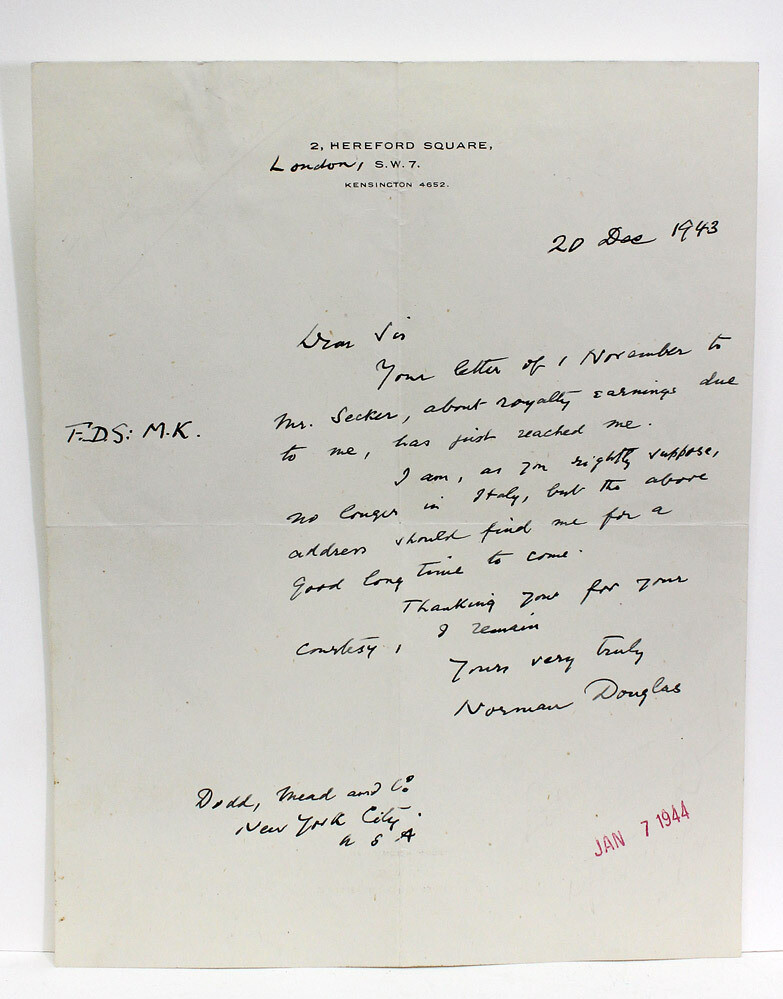 2, HEREFORD SQUARE,
London, S.W.7.
KENSINGTON 4652.
20 Dec 1943
Dear Sir
Your letter of 1 November to
F.D.S: M.K.
Mr. Secker, about royalty earnings due
to me, has just reached me.
I am, as you rightly suppose,
no longer in Italy, but the above
address should find me for a
good long time to come.
Thanking you for your
courtesy, I remain
Yours very truly
Norman Douglas
Dodd, Mead and Co.
New York City.
U S A
JAN 7 1944